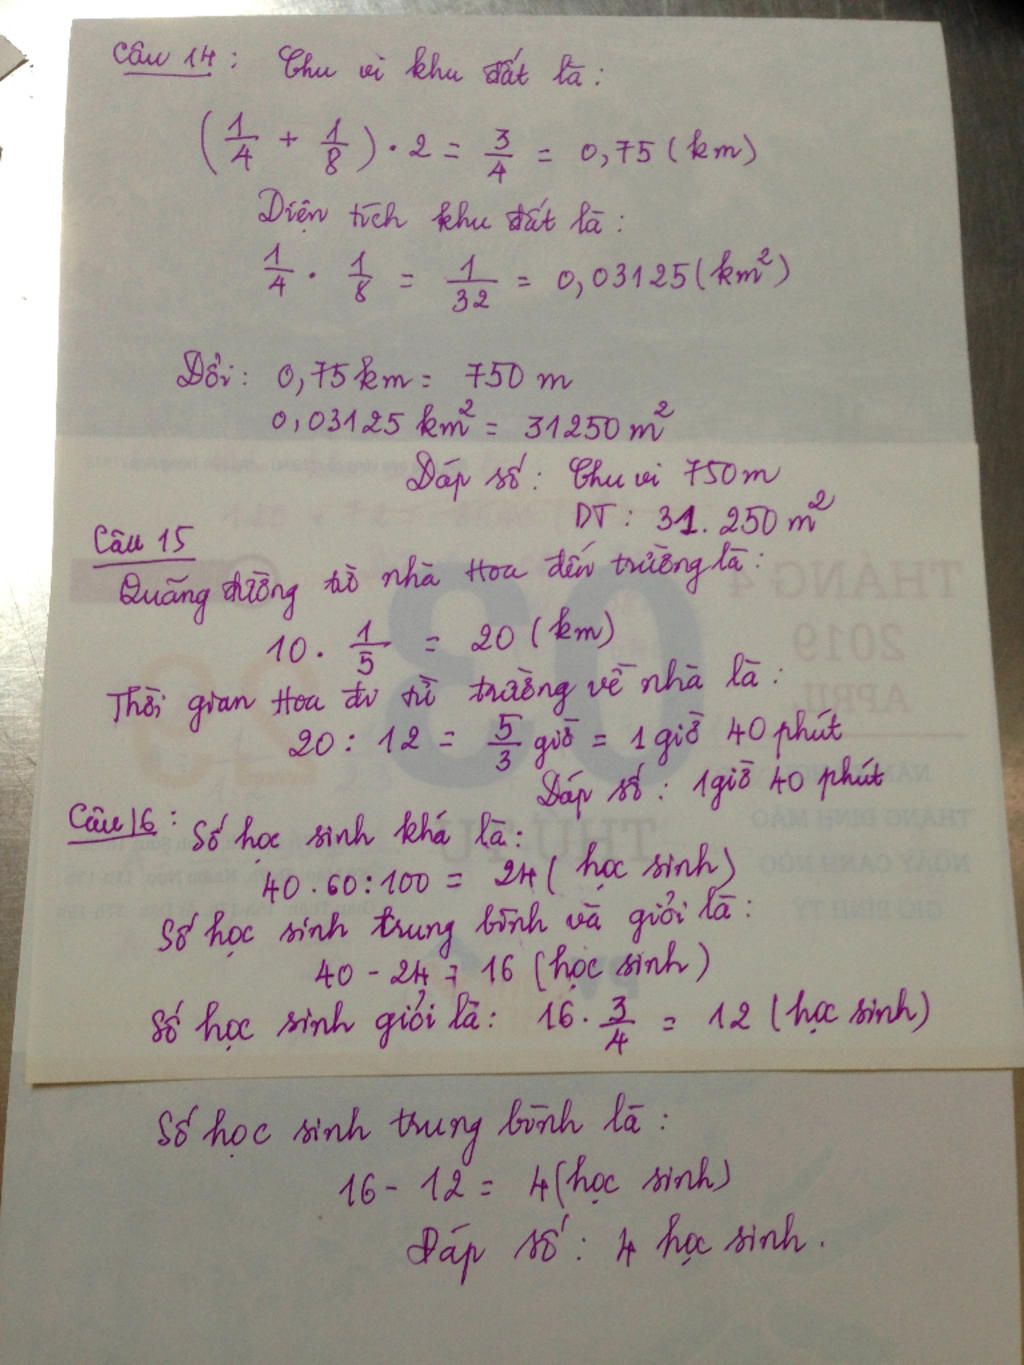 Câu 14 : Chu vi khu đất là :
(1/4 + 1/8) . 2 = 3/4 = 0,75 (km)
Diện tích khu đất là :
1/4 . 1/8 = 1/32 = 0,03125 (km²)
Đổi : 0,75 km = 750 m
0,03125 km² = 31250 m²
Đáp số : Chu vi 750m
DT : 31.250 m²
Câu 15
Quãng đường từ nhà Hoa đến trường là :
10 . 1/5 = 20 (km)
Thời gian Hoa đi từ trường về nhà là :
20 : 12 = 5/3 giờ = 1 giờ 40 phút
Đáp số : 1 giờ 40 phút
Câu 16 : Số học sinh khá là :
40 . 60 : 100 = 24 (học sinh)
Số học sinh trung bình và giỏi là :
40 - 24 = 16 (học sinh)
Số học sinh giỏi là : 16 . 3/4 = 12 (học sinh)
Số học sinh trung bình là :
16 - 12 = 4 (học sinh)
Đáp số : 4 học sinh .
THÁNG 4
2019
APRIL
03
29
THỨ TƯ
THÁNG ĐINH MÃO
NGÀY CANH NGỌ
GIỜ BÍNH TÝ